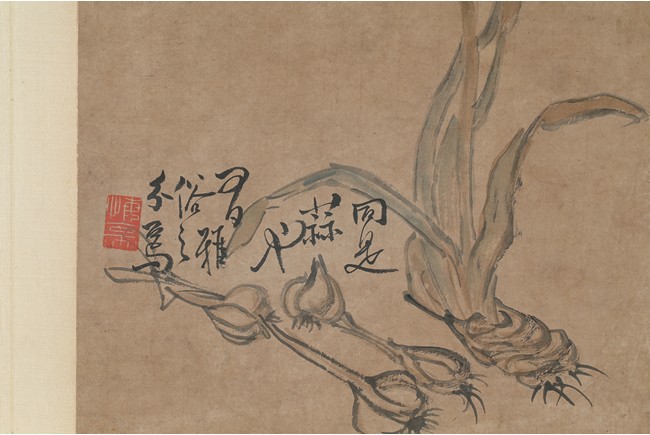 同是
蒜也
雅
俗之
分焉